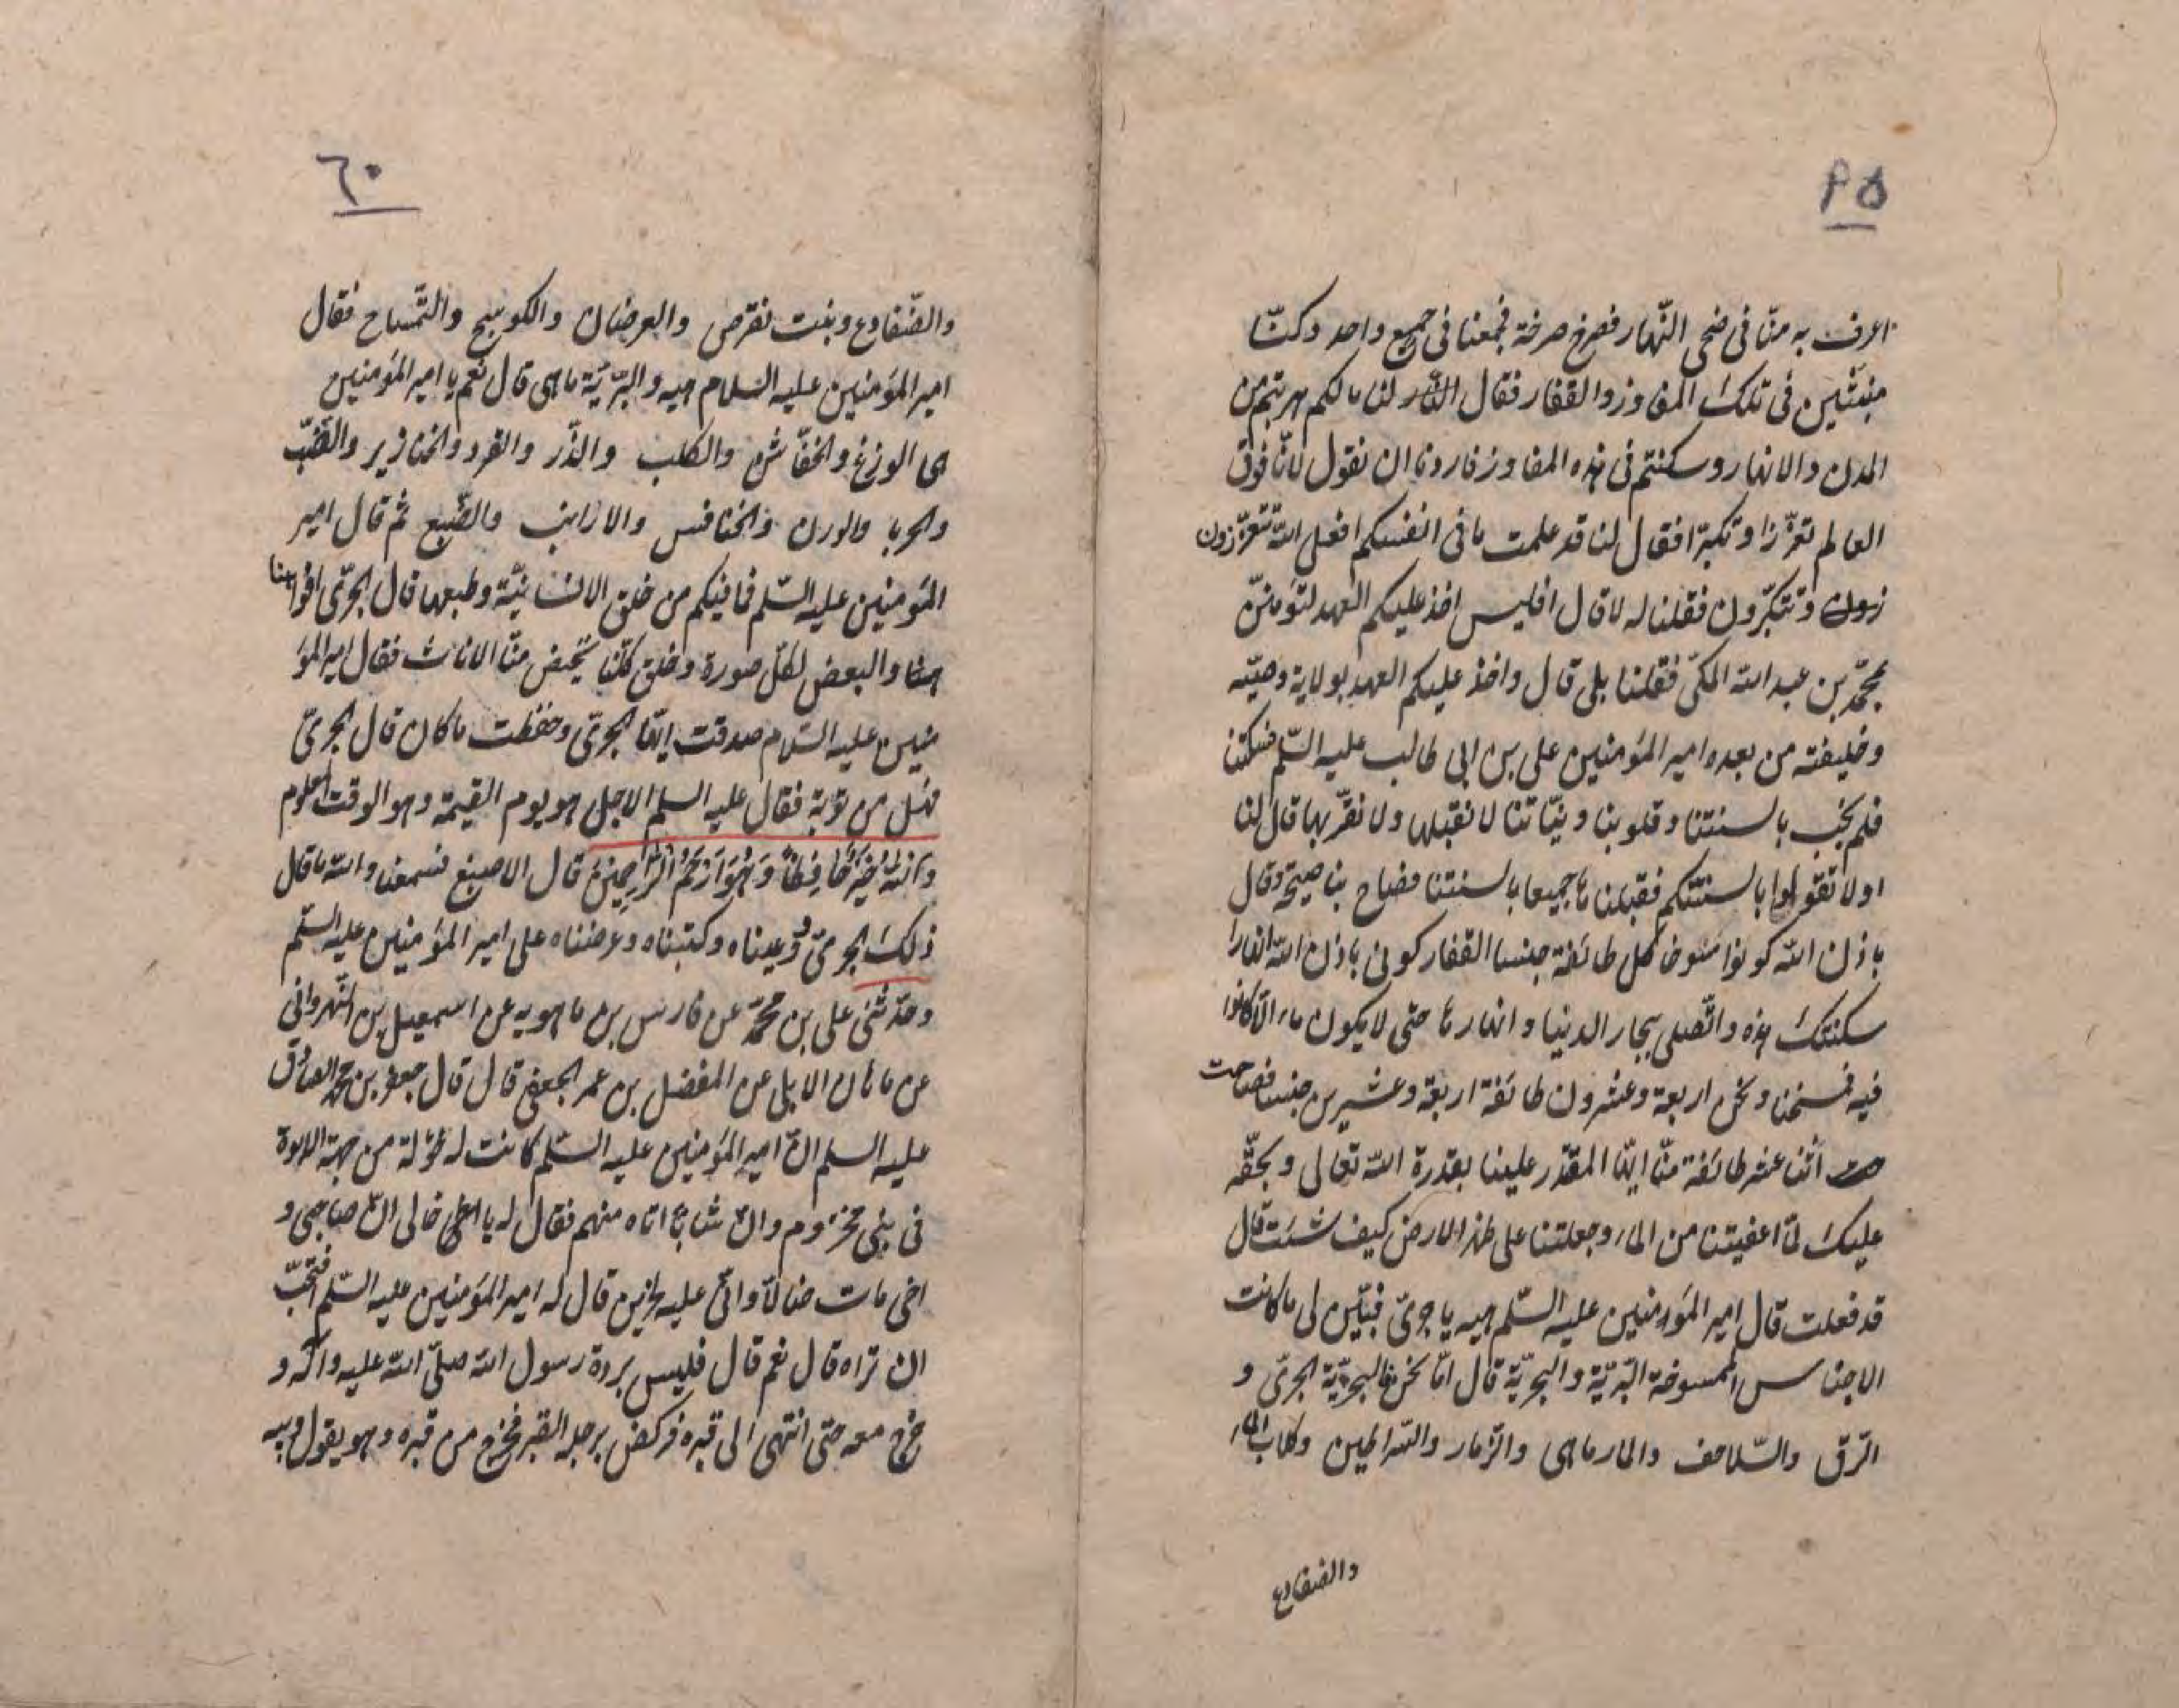 ٥٩
اعرف به منّا فى ضحى النّهار فصرخ صرخة فجمعنا فى جميع واحد وكنّا
منبثّين فى تلك المفاوز والقفار فقال لنا ما لكم هربتم من
المدن والانهار وسكنتم فى هذه المفاوز فاردنا ان نقول لانّا فوق
العالم تعزّزا وتكبّرا فقال لنا قد علمت ما فى انفسكم افعلى الله تتعزّزون
زون وتتكبّرون فقلنا له لا قال افليس اخذ عليكم العهد لتؤمننّ
بمحمّد بن عبد الله المكّى فقلنا بلى قال واخذ عليكم العهد بولاية وصيّه
وخليفته من بعده امير المؤمنين على بن ابى طالب عليه السّلم فسكتنا
فلم نجب بالسنتنا وقلوبنا ونيّاتنا لا نقبلها ولا نقرّ بها قال لنا
اولا تقولوا بالسنتكم فقبلناها جميعا بالسنتنا فصاح بنا صيحة وقال
باذن الله كونوا مسوخا كل طائفة جنسا القفار كونى باذن الله انهارا
سكنتك هذه واتّصلى ببحار الدنيا وانهارها حتى لا يكون ماء الّا كانوا
فيه فمسخنا ونحن اربعة وعشرون طائفة اربعة وعشرين جنسا فصاحت
حت اثنا عشر طائفة منّا ايّها المقتدر علينا بقدرة الله تعالى وبحقّه
عليك لمّا اعفيتنا من الماء وجعلتنا على ظهر الارض كيف شئت قال
قد فعلت قال امير المؤمنين عليه السّلم هيه يا جرىّ فبيّن لى ما كانت
الاجناس الممسوخة البّريّة والبحريّة قال امّا نحن فالبحريّة الجرىّ و
الرّق والسّلاحف والمارماهى والزّمار والسّراطين وكلاب الماء
والضفادع
٦٠
والضّفادع وبنت نقرص والعرضان والكوسج والتّمساح فقال
امير المؤمنين عليه السلام هيه والبرّيّة ما هى قال نعم يا امير المؤمنين
هى الوزغ والخفّاش والكلب والذّر والقرد والخنازير والضّبّ
والحربا والورل والخنافس والارانب والضّبع ثم قال امير
المؤمنين عليه السّلم فما فيكم من خلق الانسانيّة وطبعها قال الجرّى افواهنا
هنا والبعض لكلّ صورة وخلق كلّنا تحيض منّا الاناث فقال امير المؤ
منين عليه السّلام صدقت ايّها الجرىّ وحفظت ما كان قال الجرىّ
فهل من توبة فقال عليه السلم الاجل هو يوم القيمة وهو الوقت المعلوم
وَاللّهُ خَيْرٌ حَافِظًا وَهُوَ اَرْحَمُ الرَّاحِمِينَ قال الاصبغ فسمعنا والله ما قال
ذلك الجرىّ ووعيناه وكتبناه وعرضناه على امير المؤمنين عليه السّلم
وحدّثنى على بن محمّد عن فارس بن ماهويه عن اسمعيل بن النّهروانى
عن ماهان الابلى عن المفضل بن عمر الجعفى قال قال جعفر بن محمد الصادق
عليه السلم انّ امير المؤمنين عليه السّلم كانت له خؤلة من جهة الابوة
فى بنى مخزوم وانّ شابّا اتاه منهم فقال له يا خالى انّ صاحبى و
اخى مات ضالّا وانّى عليه لحزين قال له امير المؤمنين عليه السّلم فتحبّ
ان تراه قال نعم قال فلبس بردة رسول الله صلّى الله عليه وآله و
خرج معه حتى انتهى الى قبره فركض برجله القبر فخرج من قبره وهو يقول